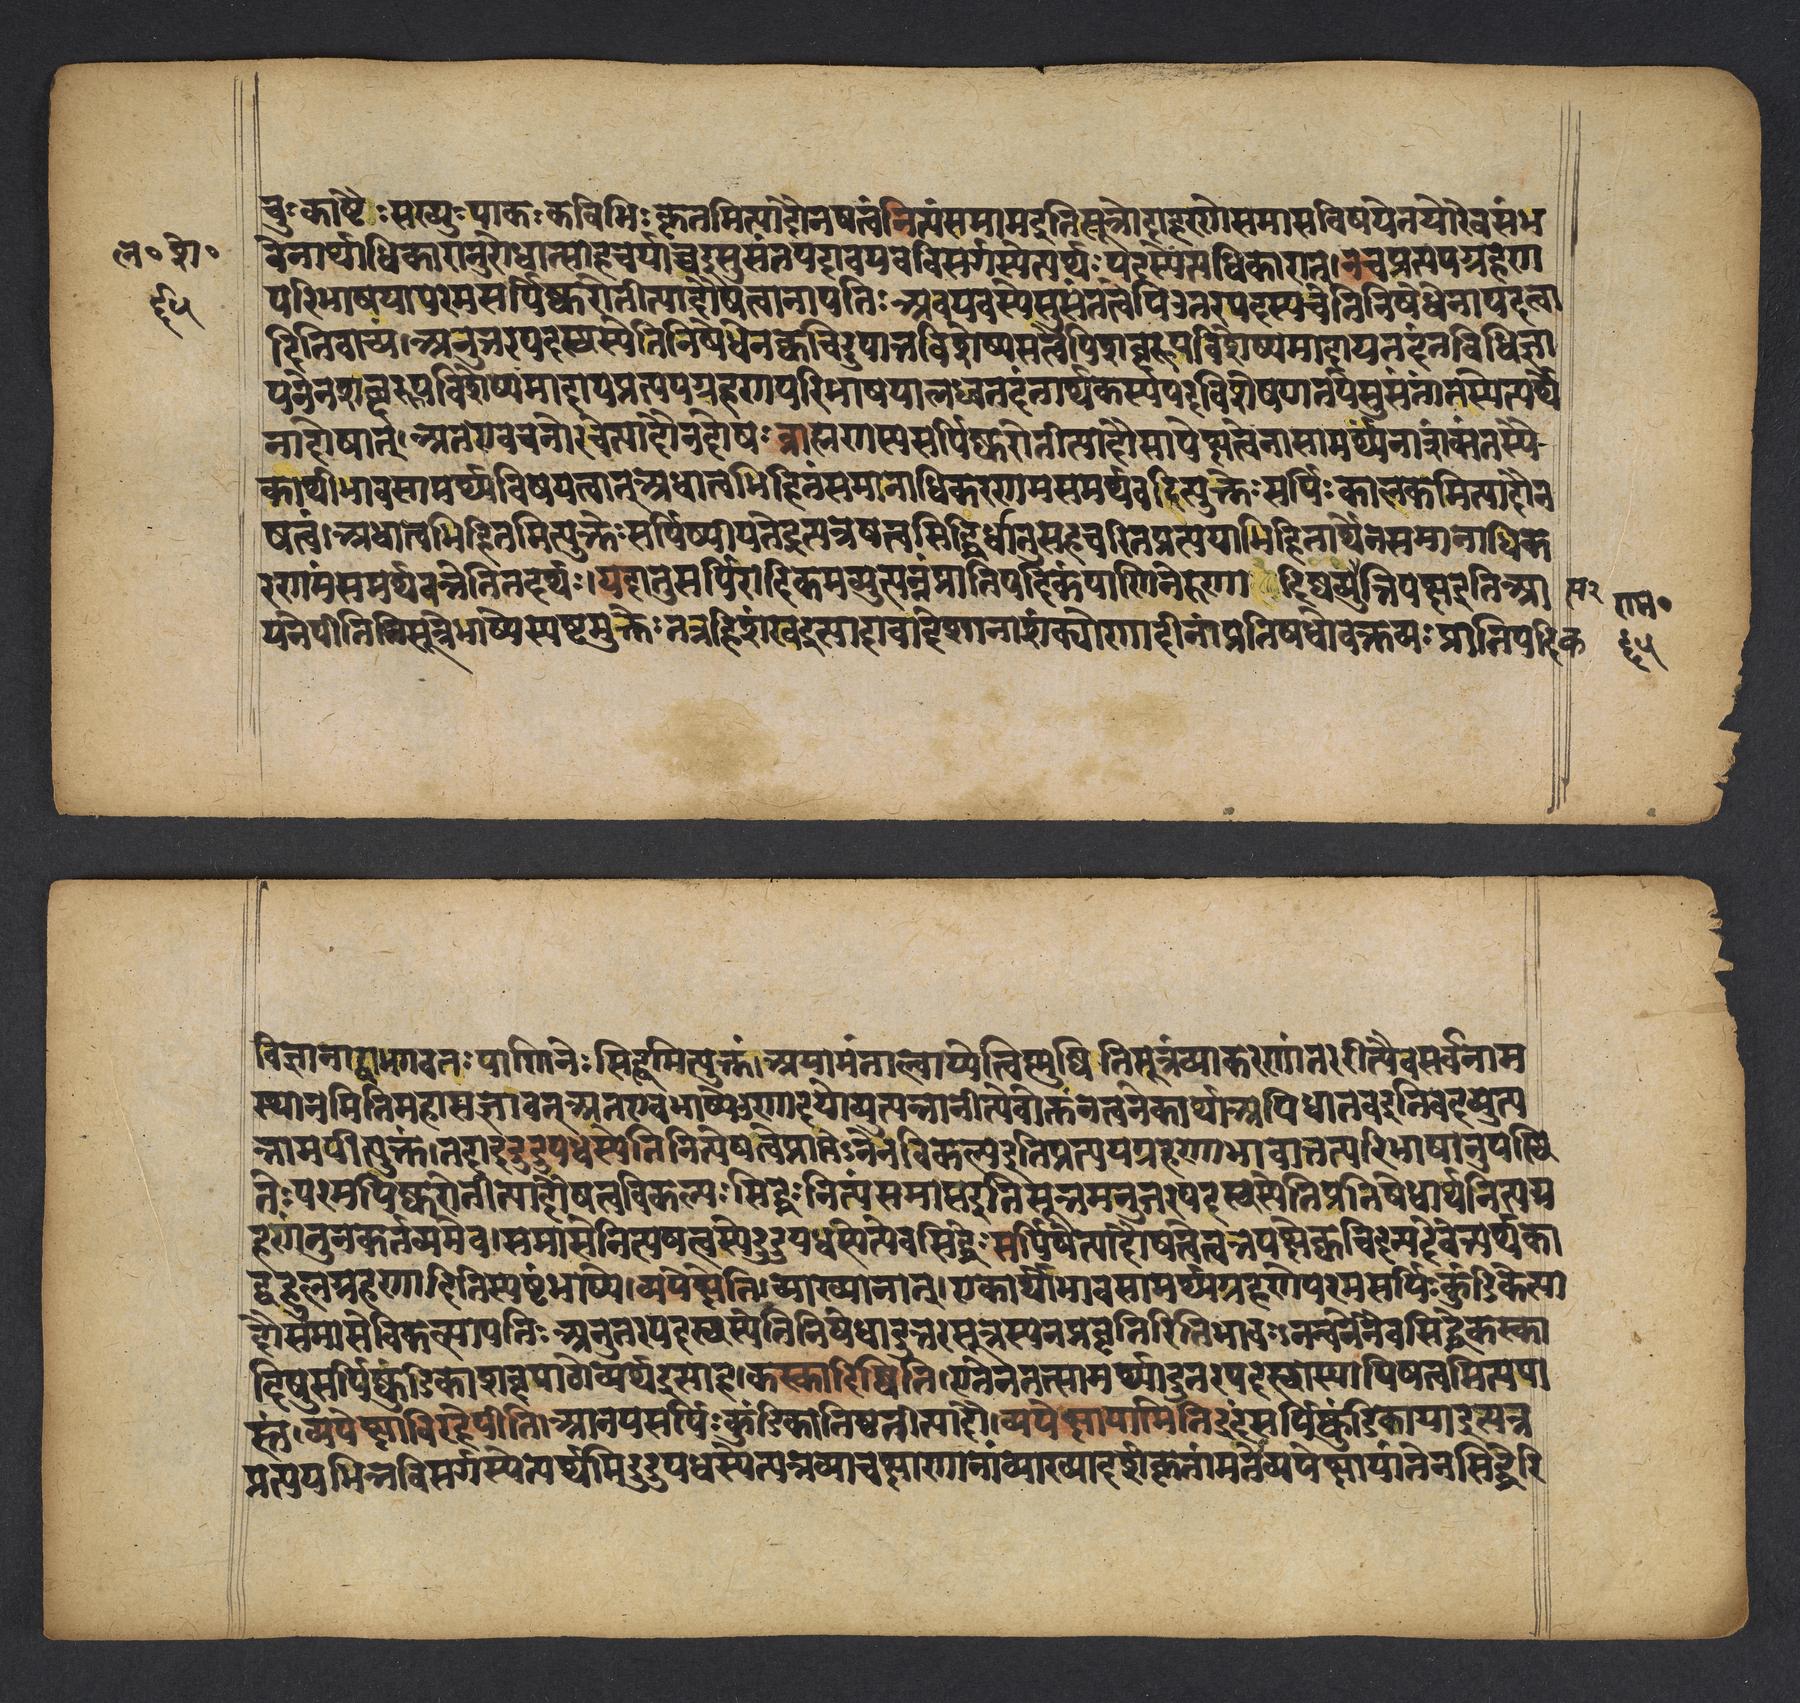 चुः काष्ठैः सख्युः पाकः कविभिः कृतमित्यादौ न षत्वं नित्यं समास इति सूत्रोदाहरणे समासविषये नयोरेव संभ
ल॰ शे॰
वेनार्थाधिकारानुरोधात्साहचर्याच्च इसुसंतपदावयवविसर्गस्येत्यर्थः पदस्येत्यधिकारात् । न च प्रत्ययग्रहण
९५
परिभाषया परमसर्पिष्करोतीत्यादौ षत्वानापत्तिः अवयवस्येसुसंतत्वेपि उत्तरपदस्य चेति निषेधेनापदत्वा
दिति वाच्यं । अनुत्तरपदस्थस्येति निषेधेन क्वचिदुपात्तविशेष्यसत्वेपि शब्दरूपं विशेष्यमादाय तदंतविधिज्ञा
पनेन शब्दरूपं विशेष्यमादाय प्रत्ययग्रहणपरिभाषया लब्धतदंतार्थकस्य पदविशेषणत्वे इसुसंतांतस्येत्यर्थे
नादोषात् । अतएव वचनोरेवेत्यादौ न दोषः ब्राह्मणस्य सर्पिष्करोतीत्यादौ सापेक्षत्वेनासामर्थ्यं नाशंक्यं तस्यै
कार्थीभावसामर्थ्यविषयत्वात् अधात्वभिहितं समानाधिकरणमसमर्थवदित्युक्तेः सर्पिः कालकमित्यादौ न
षत्वं । अधात्वभिहितमित्युक्तेः सर्पिष्पीयत इत्यत्र षत्वसिद्धिर्धातुसहचरितप्रत्ययाभिहितार्थेन समानाधिक
रणमसमर्थवन्नेति तदर्थः । यदा तु सर्पिरादिकमव्युत्पन्नं प्रातिपदिकं पाणिनेरुणादिष्वव्युत्पत्तिपक्ष इति आ
स२
राम॰
यनेयीति सूत्रे भाष्ये स्पष्टमुक्तेः तत्र हि शंखः इत्यादावादेशानाशंक्योणादीनां प्रतिषेधो वक्तव्यः प्रातिपदिक
९५
विज्ञानाद्वा भगवतः पाणिनेः सिद्धमित्युक्तं । अयामंताल्वाय्येत्न्विष्णुष्विति सूत्रं व्याकरणांतररीत्यैव सर्वनाम
स्थानमिति महासंज्ञावत् अतएव भाष्ये उणादयोव्युत्पन्नानीत्येवोक्तं न त्वनेकार्था अपि धातव इतिवद्व्युत्प
न्नामपीत्युक्तं । तदा इदुदुपधस्येति नित्यषत्वे प्राप्तेऽनेन विकल्प इति प्रत्ययग्रहणाभावात्तत्परिभाषानुपस्थि
तेः परमसर्पिष्करोतीत्यादौ षत्वविकल्पः सिद्धः नित्यं समास इति सूत्रमनुत्तरपदस्थस्येति प्रतिषेधार्थं नित्यग्र
हणं तु न कर्तव्यमेव । समासे नित्यषत्वस्येदुदुपधस्येत्येव सिद्धेः सर्पिषेत्यादौ षत्वं त्वन्यपक्षे क्वचिदसदेवेत्यर्थका
द्बहुलग्रहणादिति स्पष्टं भाष्ये । व्यपेक्षेति । व्याख्यानात् । एकार्थीभावसामर्थ्यग्रहणे परमसर्पिः कुंडिकेत्या
दौ समासे विकल्पापत्तिः अनुत्तरपदस्थस्येति निषेधादुत्तरसूत्रस्य न प्रवृत्तिरिति भावः नन्वनेनैव सिद्धे कस्का
दिषु सर्पिष्कुंडिकाशब्दपाठो व्यर्थ इत्याह । कस्कादिष्विति । एतेन तत्सामर्थ्यादुत्तरपदस्थस्यापि षत्वमित्यपा
स्तं । व्यपेक्षाविरहेपीति । आनय सर्पिः कुंडिका तिष्ठतीत्यादौ । व्यपेक्षायामिति इदं सर्पिष्कुंडिकाया इत्यत्र
प्रत्ययभिन्नविसर्गस्येत्यर्थमिदुदुपधस्येत्यत्र व्याचक्षाणानां व्याख्यादर्शकृतां मते व्यपेक्षायां तेन सिद्धेरि